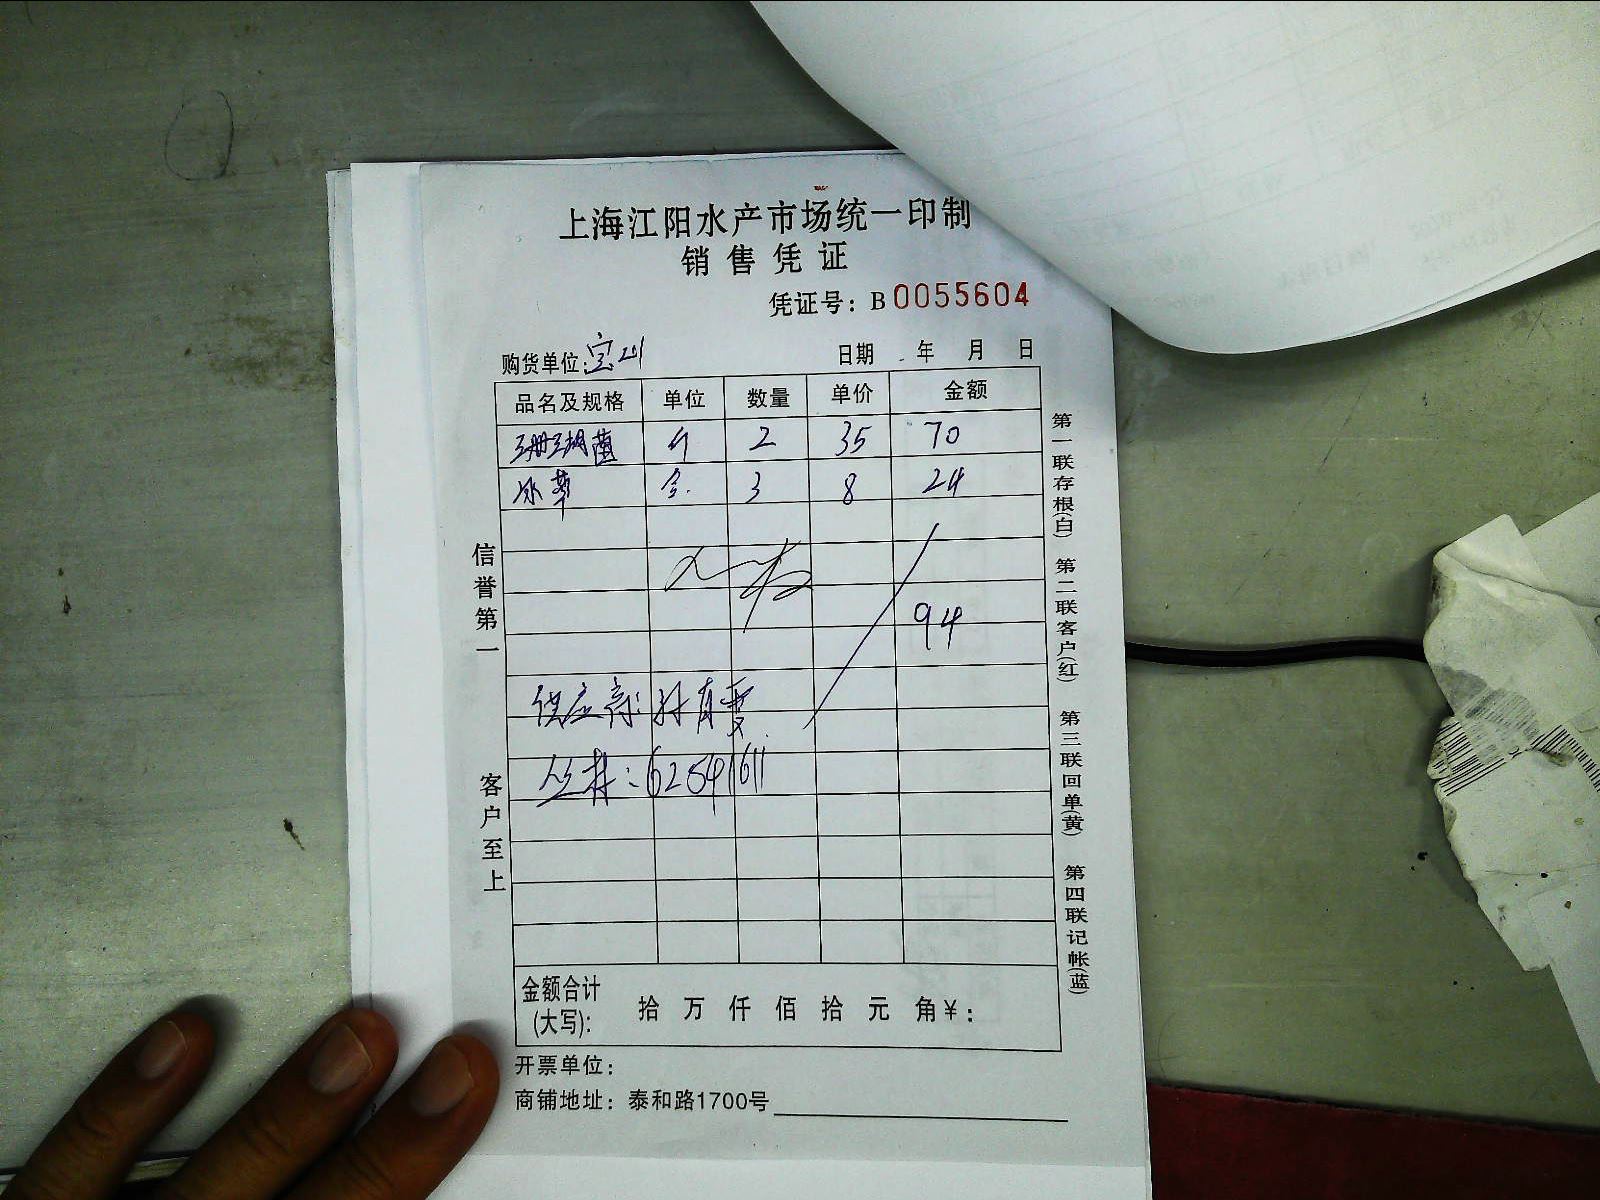 上海江阳水产市场统一印制
销售凭证
凭证号：B 0055604
购货单位：宝山 日期 年 月 日
品名及规格 单位 数量 单价 金额
珊瑚菌 斤 2 35 70
冰草 盒. 3 8 24
94
供应商：孙有
62541611
金额合计(大写)： 拾 万 仟 佰 拾 元 角 ¥：
开票单位：
商铺地址：泰和路1700号
信誉第一 客户至上
第一联存根(白) 第二联客户(红) 第三联回单(黄) 第四联记帐(蓝)